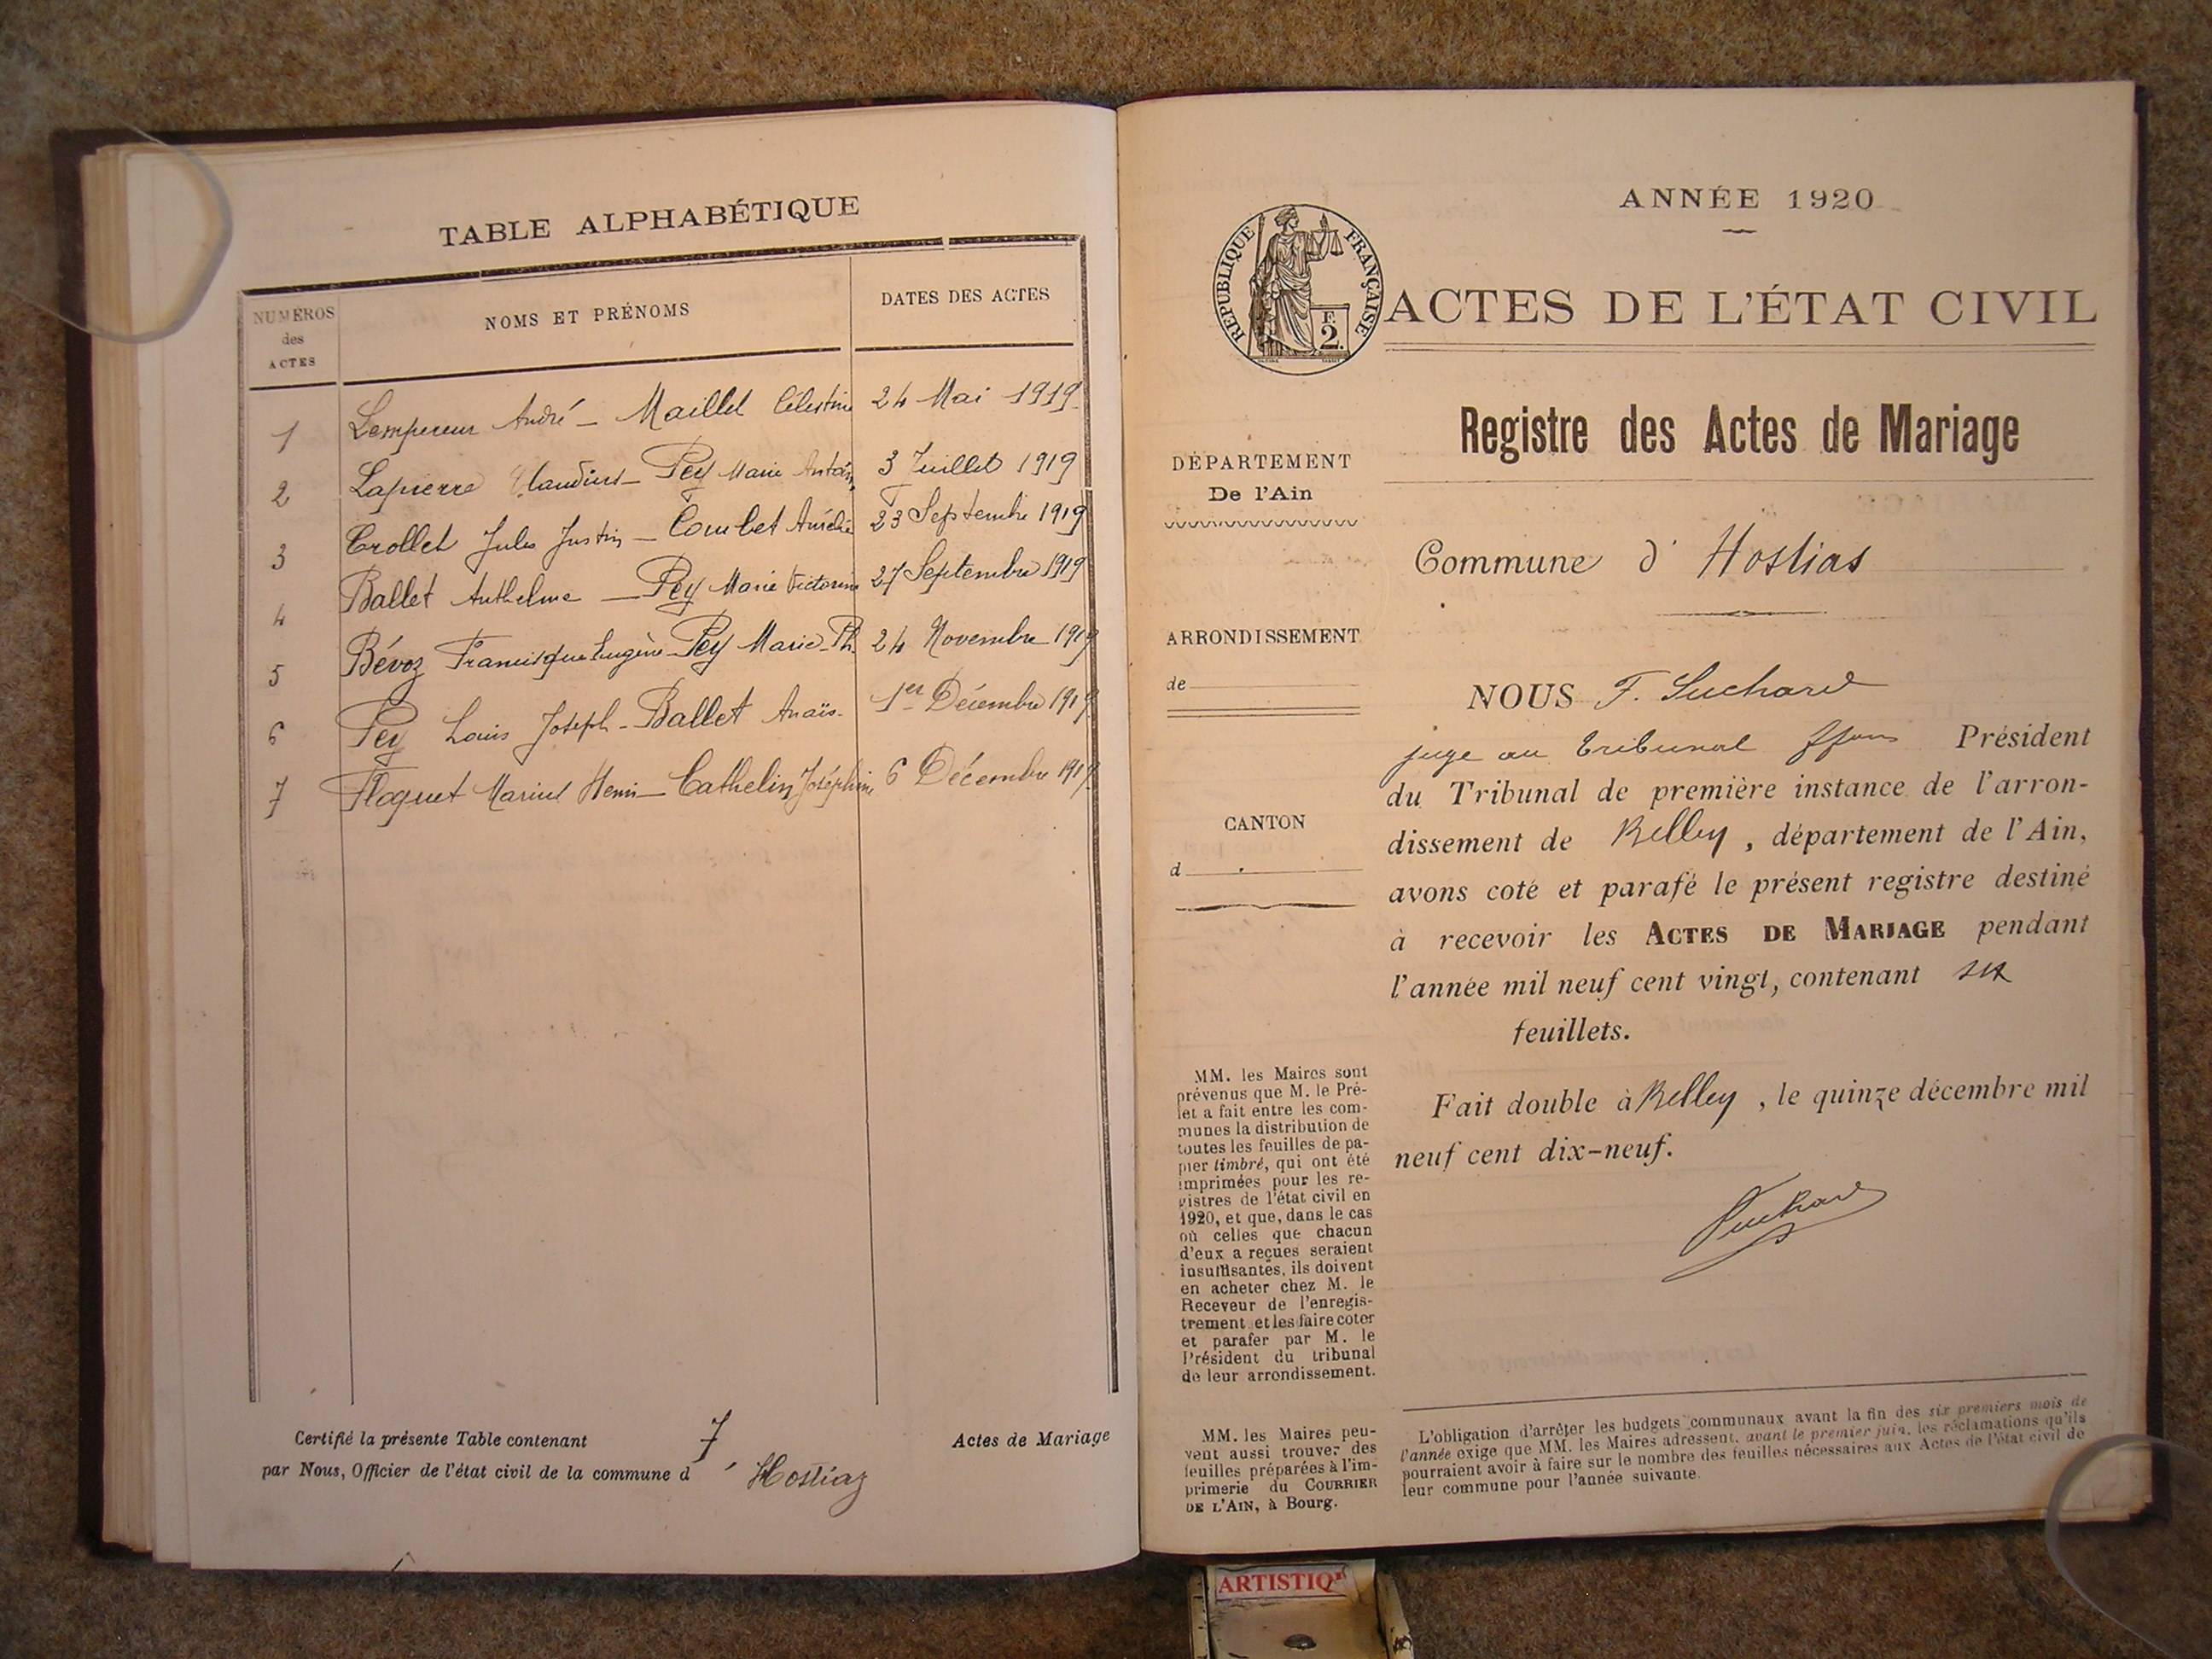 TABLE ALPHABÉTIQUE
NUMÉROS
des
ACTES
NOMS ET PRÉNOMS
DATES DES ACTES
1 Lempereur André – Maillet Célestine 24 Mai 1919
2 Lapierre Claudius – Pey Marie Anto 3 Juillet 1919
3 Crollet Jules Justin – Combet Aurélie 23 Septembre 1919
4 Ballet Anthelme – Pey Marie Victorine 27 Septembre 1919
5 Bévoz Francisque Eugène – Pey Marie-Th. 24 Novembre 1919
6 Pey Louis Joseph – Ballet Anaïs 1er Décembre 1919
7 Floquet Marius Henri – Cathelin Joséphine 6 Décembre 1919
Certifié la présente Table contenant 7 Actes de Mariage
par Nous, Officier de l'état civil de la commune d' Hostiaz
ANNÉE 1920
RÉPUBLIQUE FRANÇAISE
F.
2.
ACTES DE L'ÉTAT CIVIL
Registre des Actes de Mariage
DÉPARTEMENT
De l'Ain
Commune d' Hostias
ARRONDISSEMENT
de
CANTON
d
NOUS F. Suchard
juge au tribunal ffons Président
du Tribunal de première instance de l'arron-
dissement de Belley, département de l'Ain,
avons coté et parafé le présent registre destiné
à recevoir les ACTES DE MARIAGE pendant
l'année mil neuf cent vingt, contenant six
feuillets.
Fait double à Belley, le quinze décembre mil
neuf cent dix-neuf.
Suchard
MM. les Maires sont
prévenus que M. le Pré-
fet a fait entre les com-
munes la distribution de
toutes les feuilles de pa-
pier timbré, qui ont été
imprimées pour les re-
gistres de l'état civil en
1920, et que, dans le cas
où celles que chacun
d'eux a reçues seraient
insuffisantes, ils doivent
en acheter chez M. le
Receveur de l'enregis-
trement et les faire coter
et parafer par M. le
Président du tribunal
de leur arrondissement.
MM. les Maires peu-
vent aussi trouver des
feuilles préparées à l'im-
primerie du COURRIER
DE L'AIN, à Bourg.
L'obligation d'arrêter les budgets communaux avant la fin des six premiers mois de
l'année exige que MM. les Maires adressent, avant le premier juin, les réclamations qu'ils
pourraient avoir à faire sur le nombre des feuilles nécessaires aux Actes de l'état civil de
leur commune pour l'année suivante.
ARTISTIQ